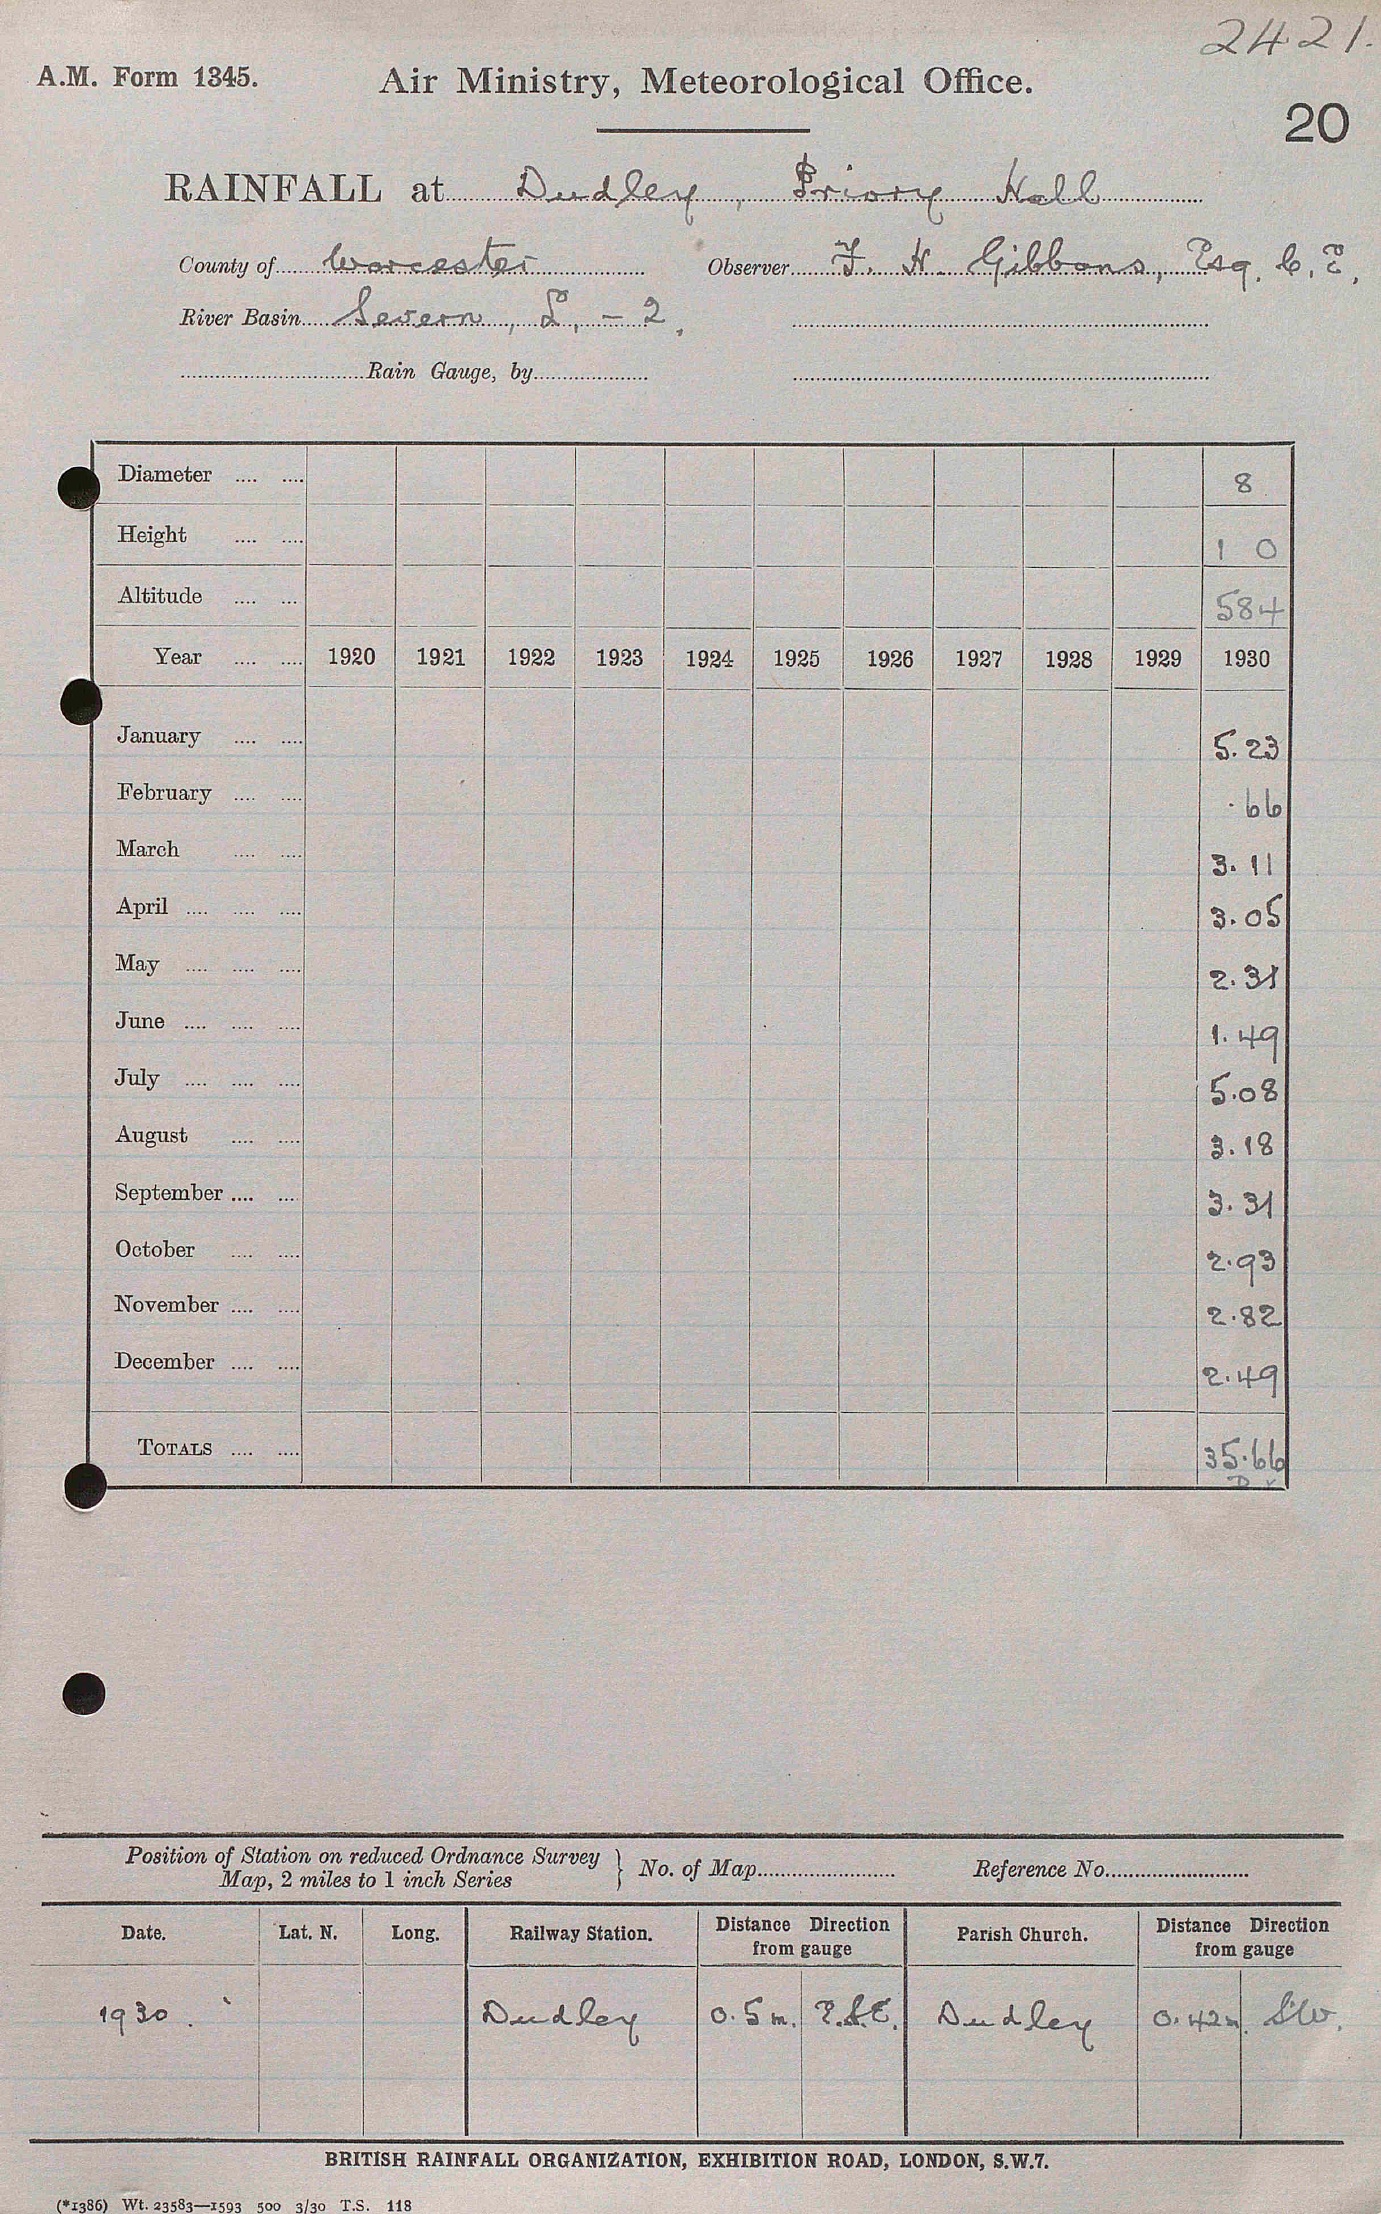 2421.
A.M. Form 1345. Air Ministry, Meteorological Office.
20
RAINFALL at Dudley, Priory Hall
County of Worcester Observer F. H. Gibbons, Esq. C.E.
River Basin Severn, L, - 2,
Rain Gauge, by
Diameter 8
Height 1 0
Altitude 584
Year 1920 1921 1922 1923 1924 1925 1926 1927 1928 1929 1930
January 5.23
February .66
March 3.11
April 3.05
May 2.31
June 1.49
July 5.08
August 3.18
September 3.31
October 2.93
November 2.82
December 2.49
TOTALS 35.66
Position of Station on reduced Ordnance Survey
Map, 2 miles to 1 inch Series } No. of Map Reference No.
Date. Lat. N. Long. Railway Station. Distance Direction from gauge Parish Church. Distance Direction from gauge
1930. Dudley 0.5 m. E.S.E. Dudley 0.42m. SW.
BRITISH RAINFALL ORGANIZATION, EXHIBITION ROAD, LONDON, S.W.7.
(*1386) Wt. 23583—1593 500 3/30 T.S. 118